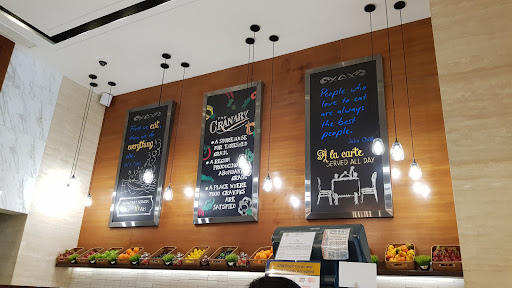 First we eat,
then we do
everything
else.
THE
GRANARY
• A STOREHOUSE
FOR THRESHED
GRAIN
• A REGION
PRODUCING
ABUNDANT
GRAIN
• A PLACE WHERE
FOOD CRAVINGS
ARE
SATISFIED
People who
love to eat
are always
the best
people.
Julia Child
À la carte
SERVED ALL DAY